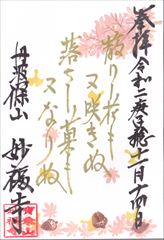 奉拝 令和二庚子穐十一月十四日
散りし花も
又咲きぬ
落ちし菓も
又なりぬ
丹波篠山 妙福寺